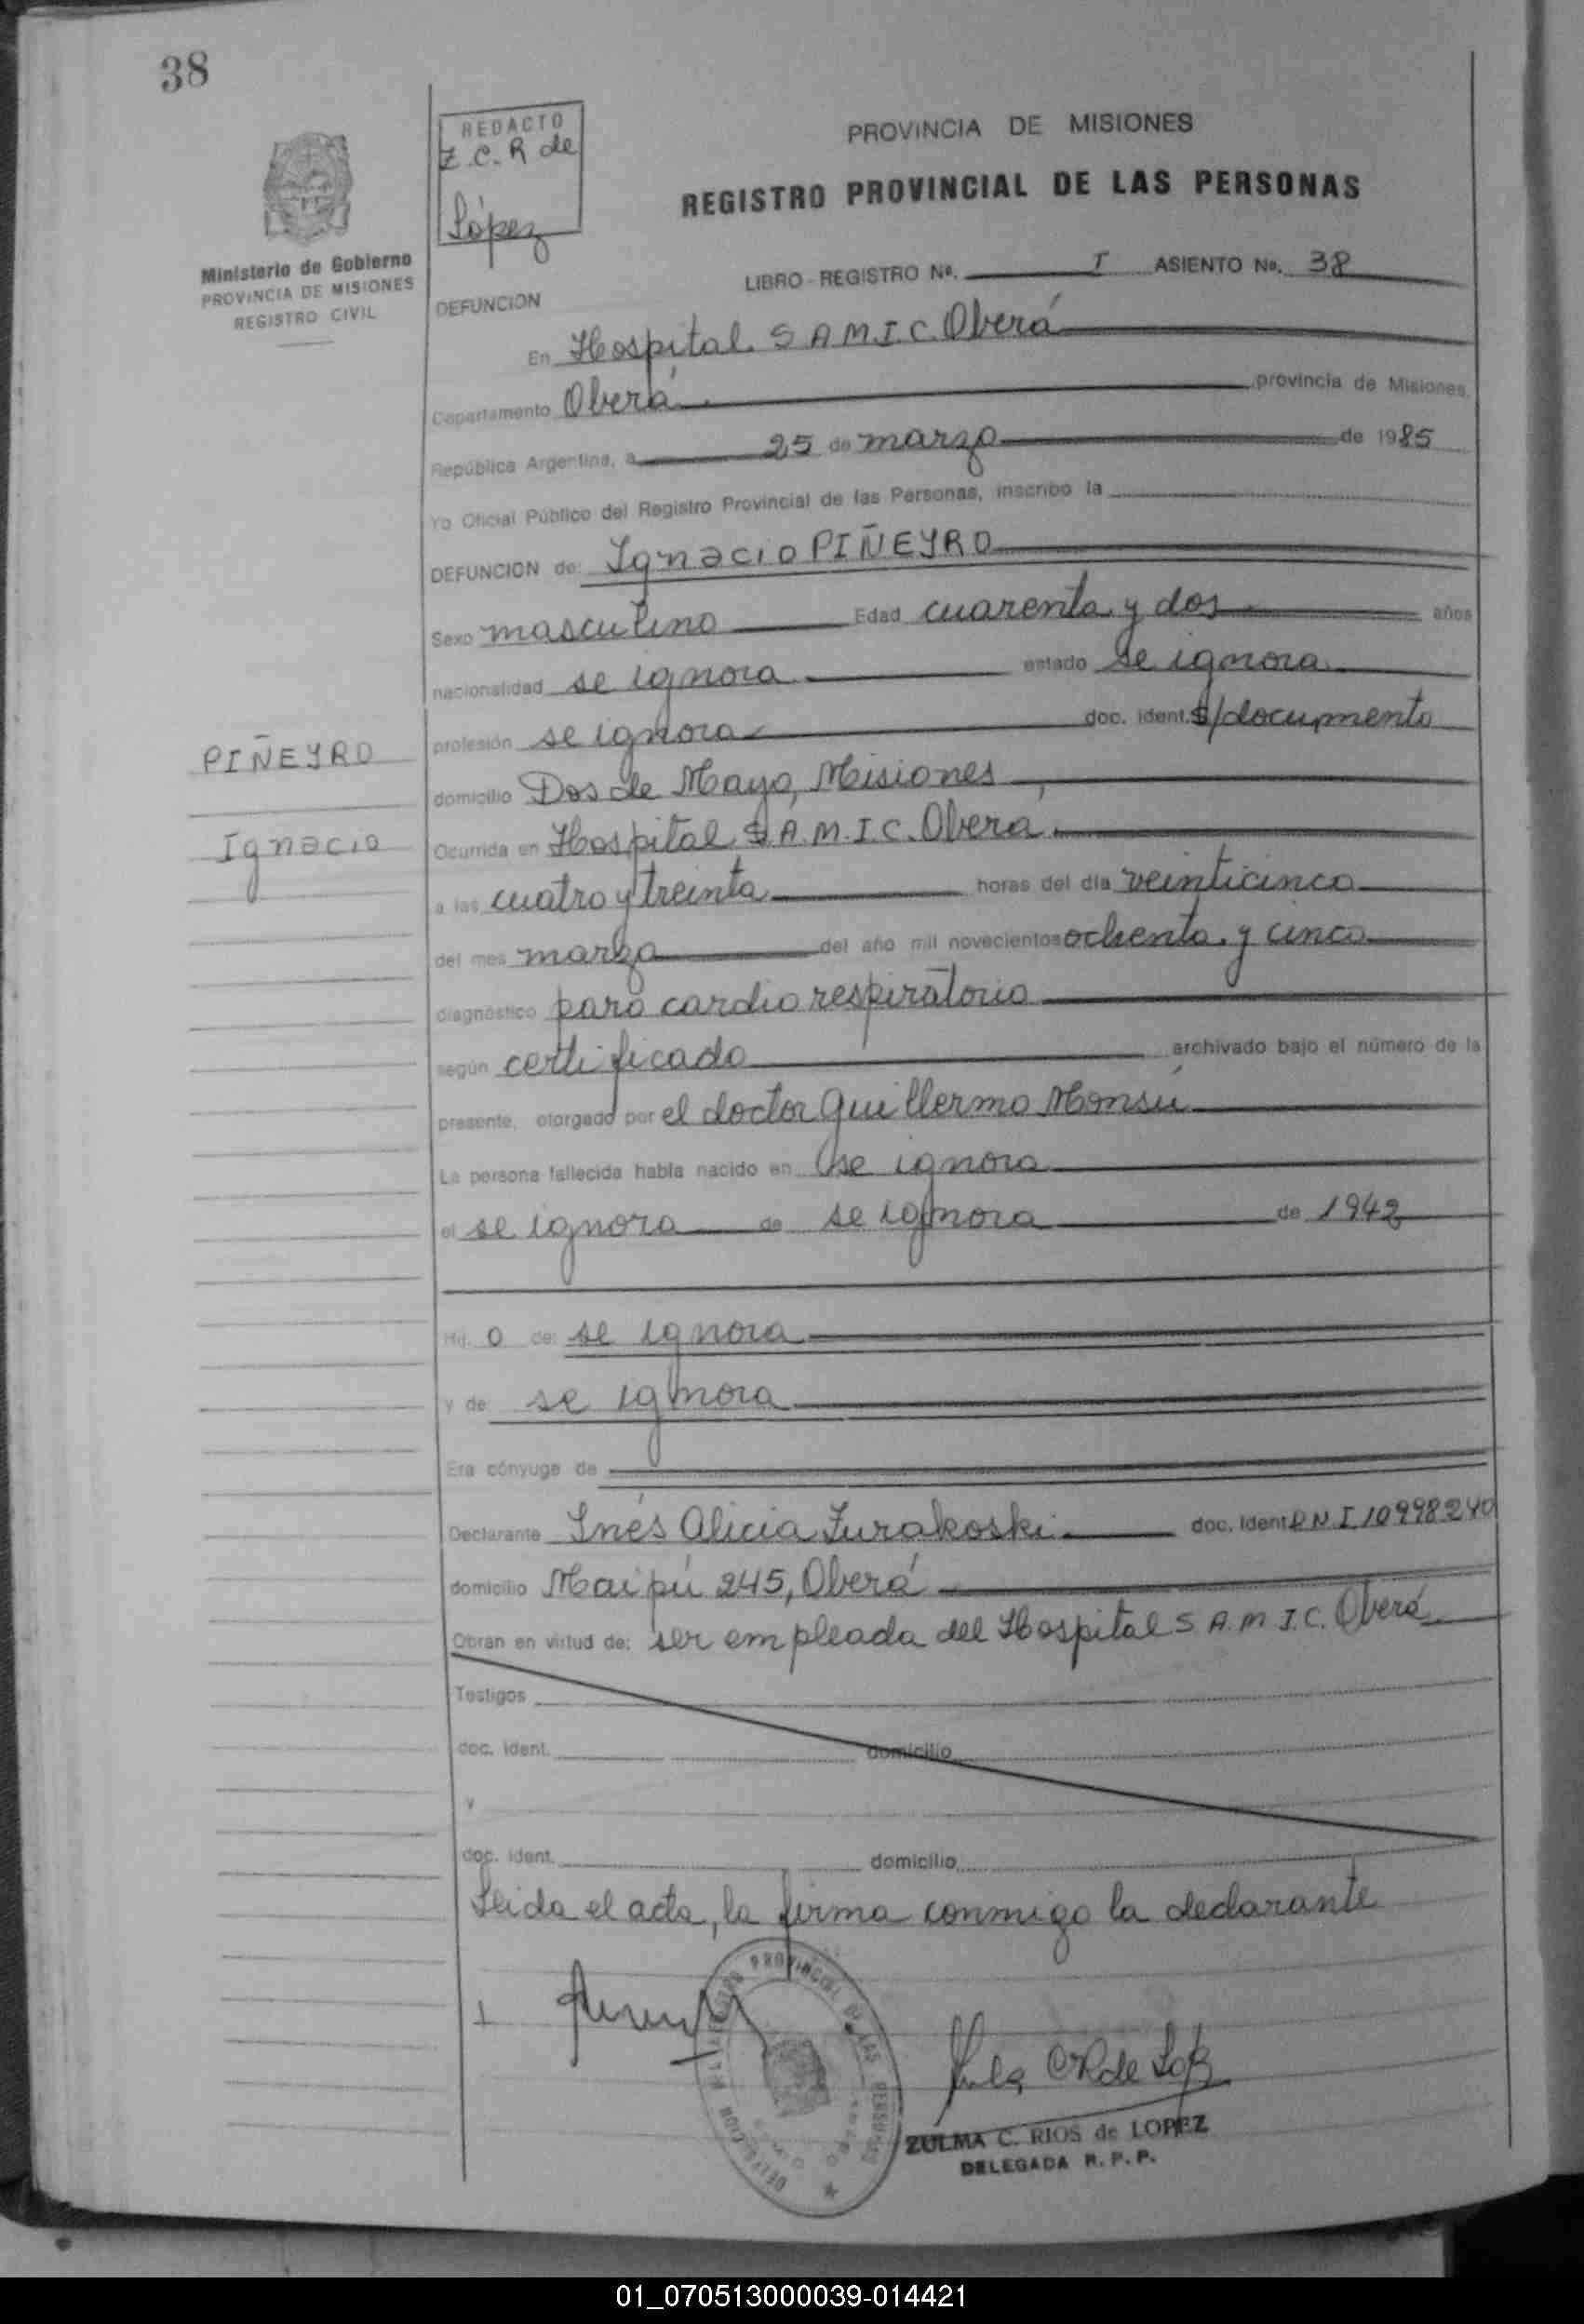 38
REDACTO
Z.C.R de
López
Ministerio de Gobierno
PROVINCIA DE MISIONES
REGISTRO CIVIL
PROVINCIA DE MISIONES
REGISTRO PROVINCIAL DE LAS PERSONAS
LIBRO - REGISTRO Nº. I ASIENTO Nº. 38
DEFUNCION
En Hospital S A M.I.C. Oberá
Departamento Oberá provincia de Misiones,
República Argentina, a 25 de marzo de 1985
Yo Oficial Público del Registro Provincial de las Personas, inscribo la
DEFUNCION de: Ignacio PIÑEYRO
Sexo masculino Edad cuarenta y dos años
nacionalidad se ignora estado se ignora
profesión se ignora doc. ident. s/documento
PIÑEYRO
Ignacio
domicilio Dos de Mayo, Misiones
Ocurrida en Hospital S.A.M.I.C. Oberá
a las cuatro y treinta horas del día veinticinco
del mes marzo del año mil novecientos ochenta y cinco
diagnóstico paro cardio respiratorio
según certificado archivado bajo el número de la
presente, otorgado por el doctor Guillermo Monsú
La persona fallecida había nacido en se ignora
el se ignora de se ignora de 1942
Hij. o de: se ignora
y de se ignora
Era cónyuge de
Declarante Inés Alicia Zurakoski doc. ident. DNI 10998240
domicilio Maipú 245, Oberá
Obran en virtud de: ser empleada del Hospital S A.M I.C. Oberá
Testigos
doc. ident. domicilio
y
doc. ident. domicilio
Leida el acta, la firma conmigo la declarante
ZULMA C. RIOS de LOPEZ
DELEGADA R. P. P.
01_070513000039-014421